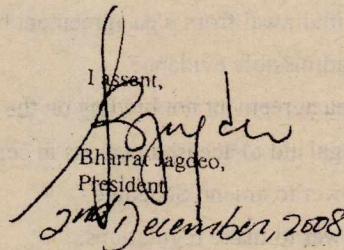 I assent,
Bharrat Jagdeo,
President.
2nd December, 2008